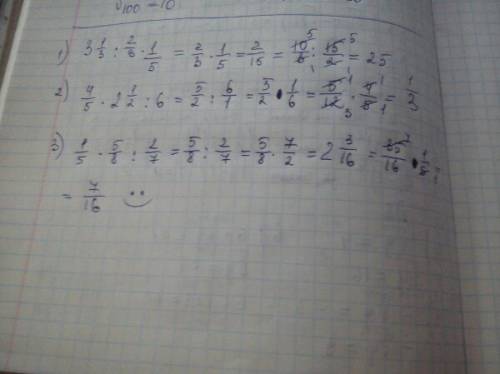 S₁₀₀ = 10
1) 3 1/3 : 2/3 · 1/5 = 2/3 · 1/5 = 2/15 = 10/3 : 15/2 = 25
2) 4/5 · 2 1/2 : 6 = 5/2 : 6/1 = 5/2 · 1/6 = 5/12 · 4/5 = 1/3
3) 1/5 · 5/8 : 2/7 = 5/8 : 2/7 = 5/8 · 7/2 = 2 3/16 = 35/16 · 1/5
= 7/16